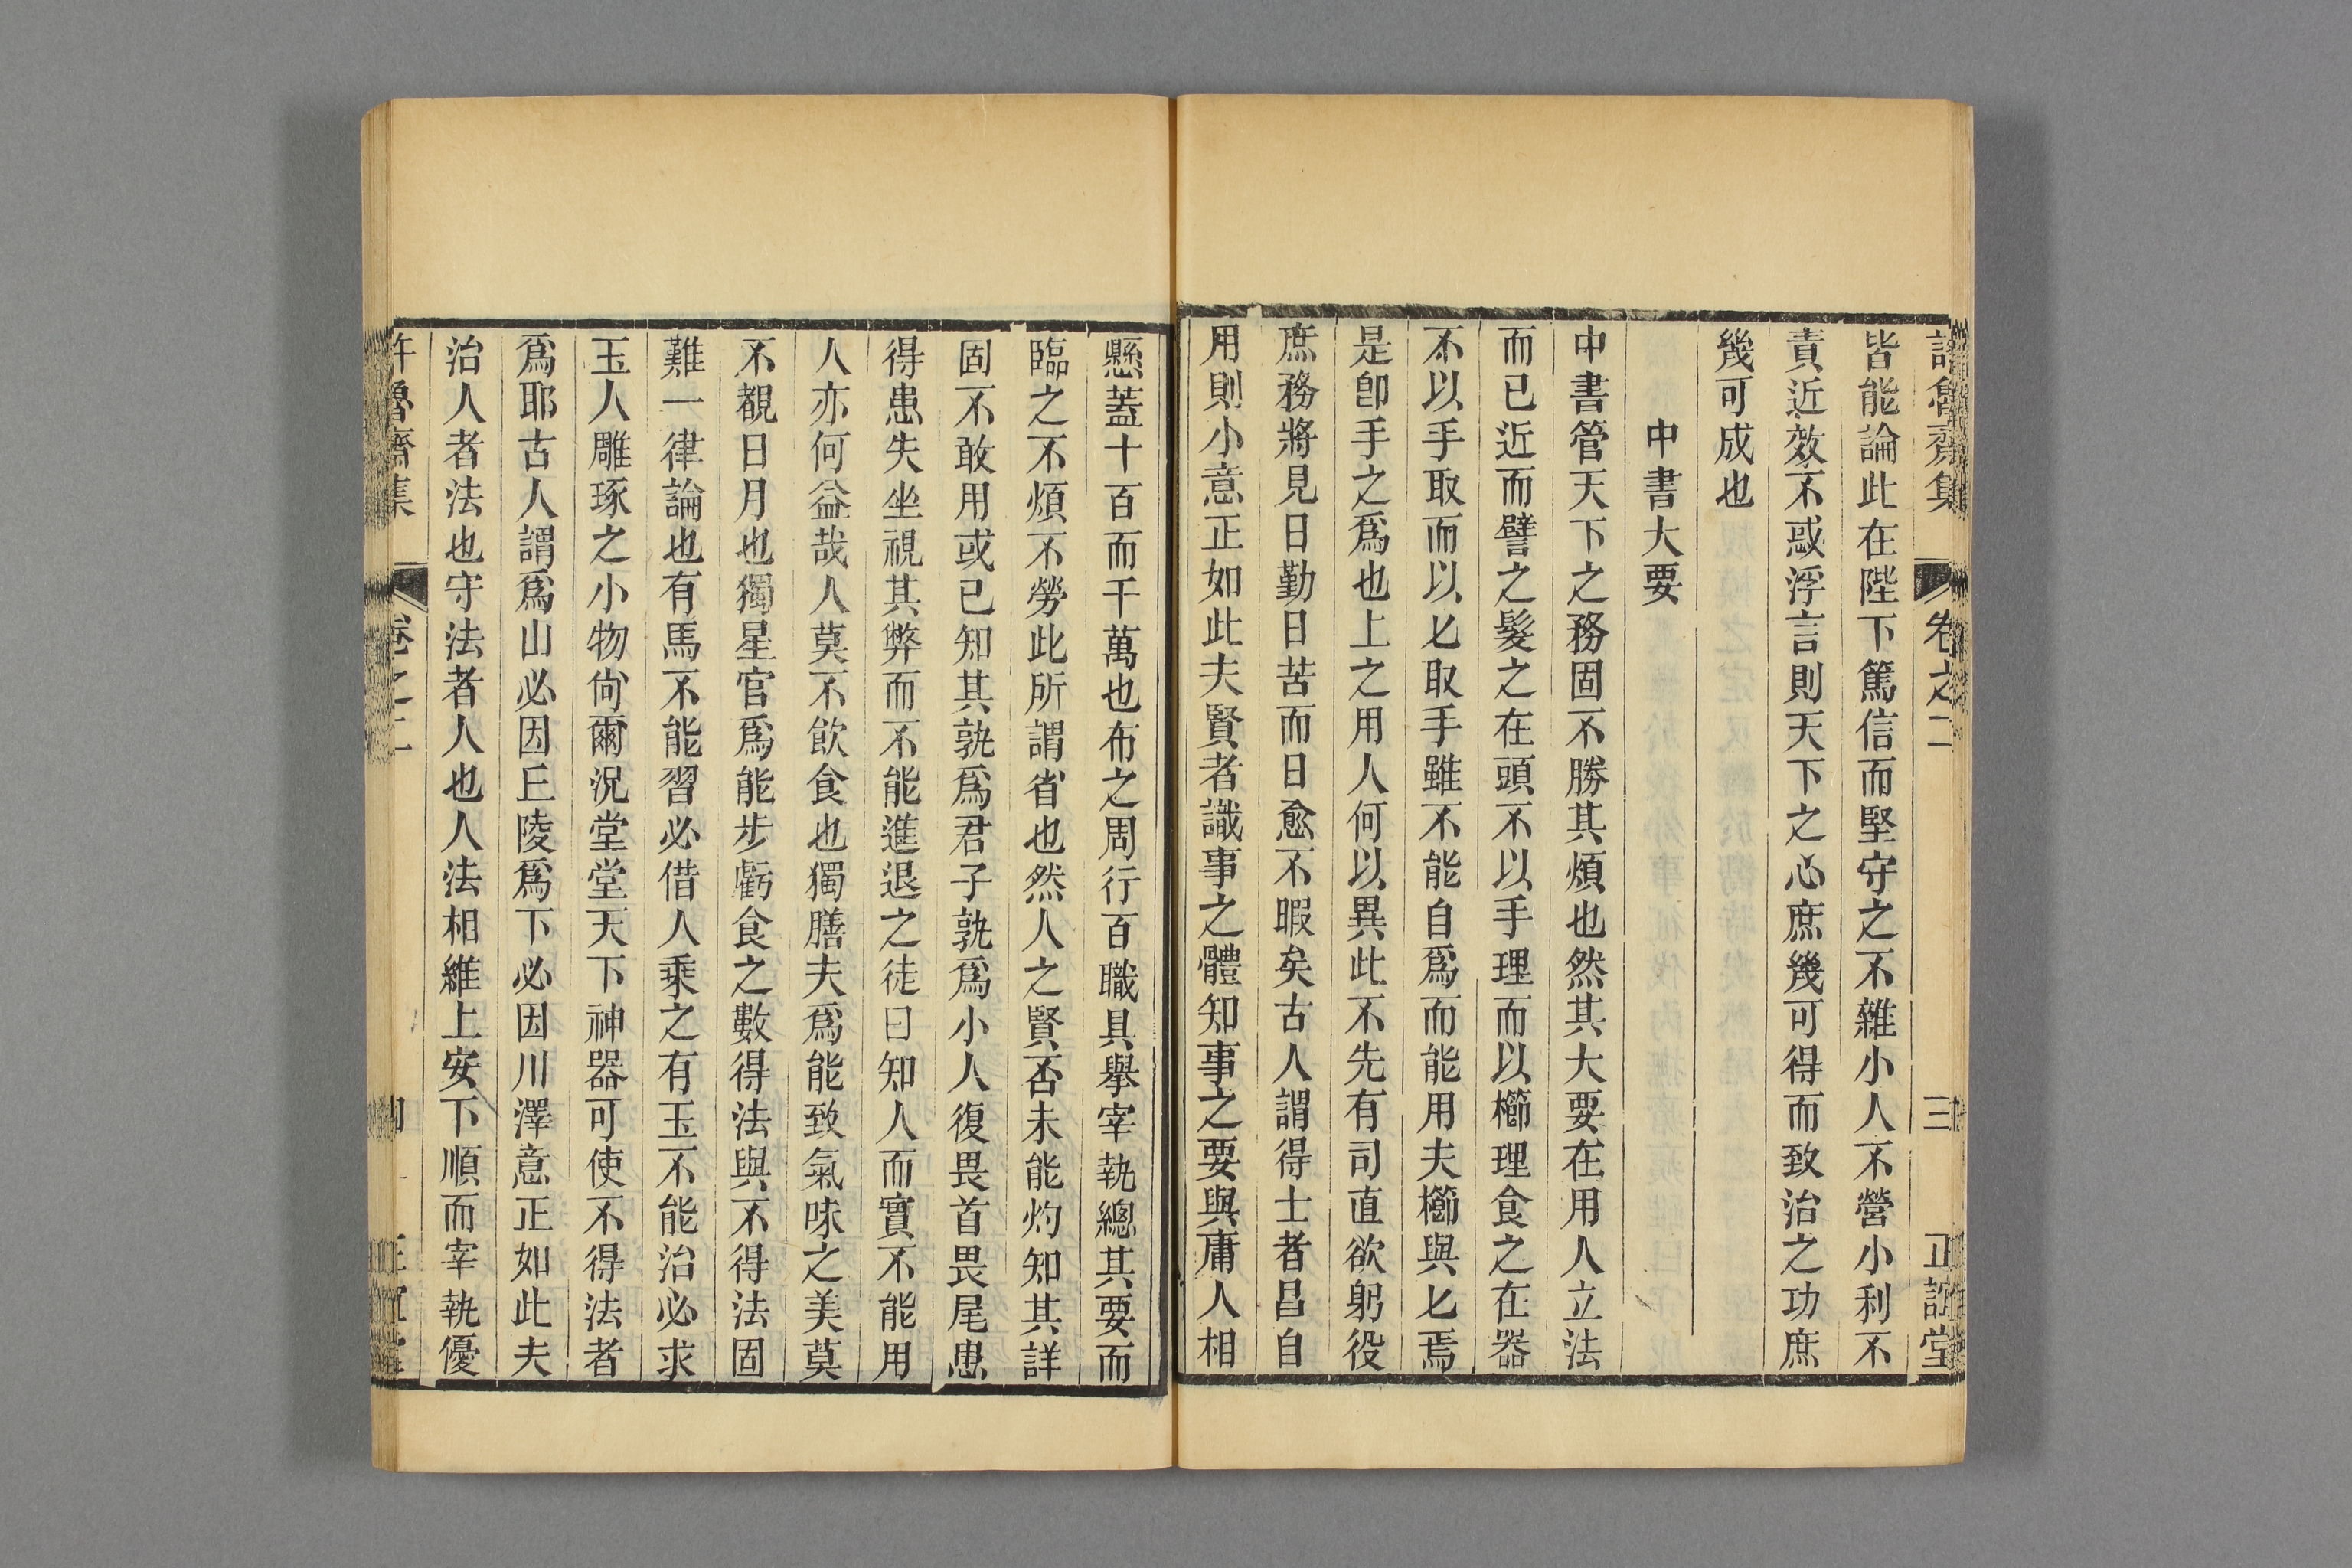 許魯齋集 卷之二 三 正誼堂
皆能論此在陛下篤信而堅守之不雜小人不營小利不
責近效不惑浮言則天下之心庶幾可得而致治之功庶
幾可成也
中書大要
中書管天下之務固不勝其煩也然其大要在用人立法
而已近而譬之髮之在頭不以手理而以櫛理食之在器
不以手取而以匕取手雖不能自爲而能用夫櫛與匕焉
是卽手之爲也上之用人何以異此不先有司直欲躬役
庶務將見日勤日苦而日愈不暇矣古人謂得士者昌自
用則小意正如此夫賢者識事之體知事之要與庸人相
懸蓋十百而千萬也布之周行百職具舉宰執總其要而
臨之不煩不勞此所謂省也然人之賢否未能灼知其詳
固不敢用或已知其孰爲君子孰爲小人復畏首畏尾患
得患失坐視其弊而不能進退之徒曰知人而實不能用
人亦何益哉人莫不飲食也獨膳夫爲能致氣味之美莫
不覩日月也獨星官爲能步虧食之數得法與不得法固
難一律論也有馬不能習必借人乘之有玉不能治必求
玉人雕琢之小物尙爾況堂堂天下神器可使不得法者
爲耶古人謂爲山必因丘陵爲下必因川澤意正如此夫
治人者法也守法者人也人法相維上安下順而宰執優
許魯齋集 卷之二 四 正誼堂